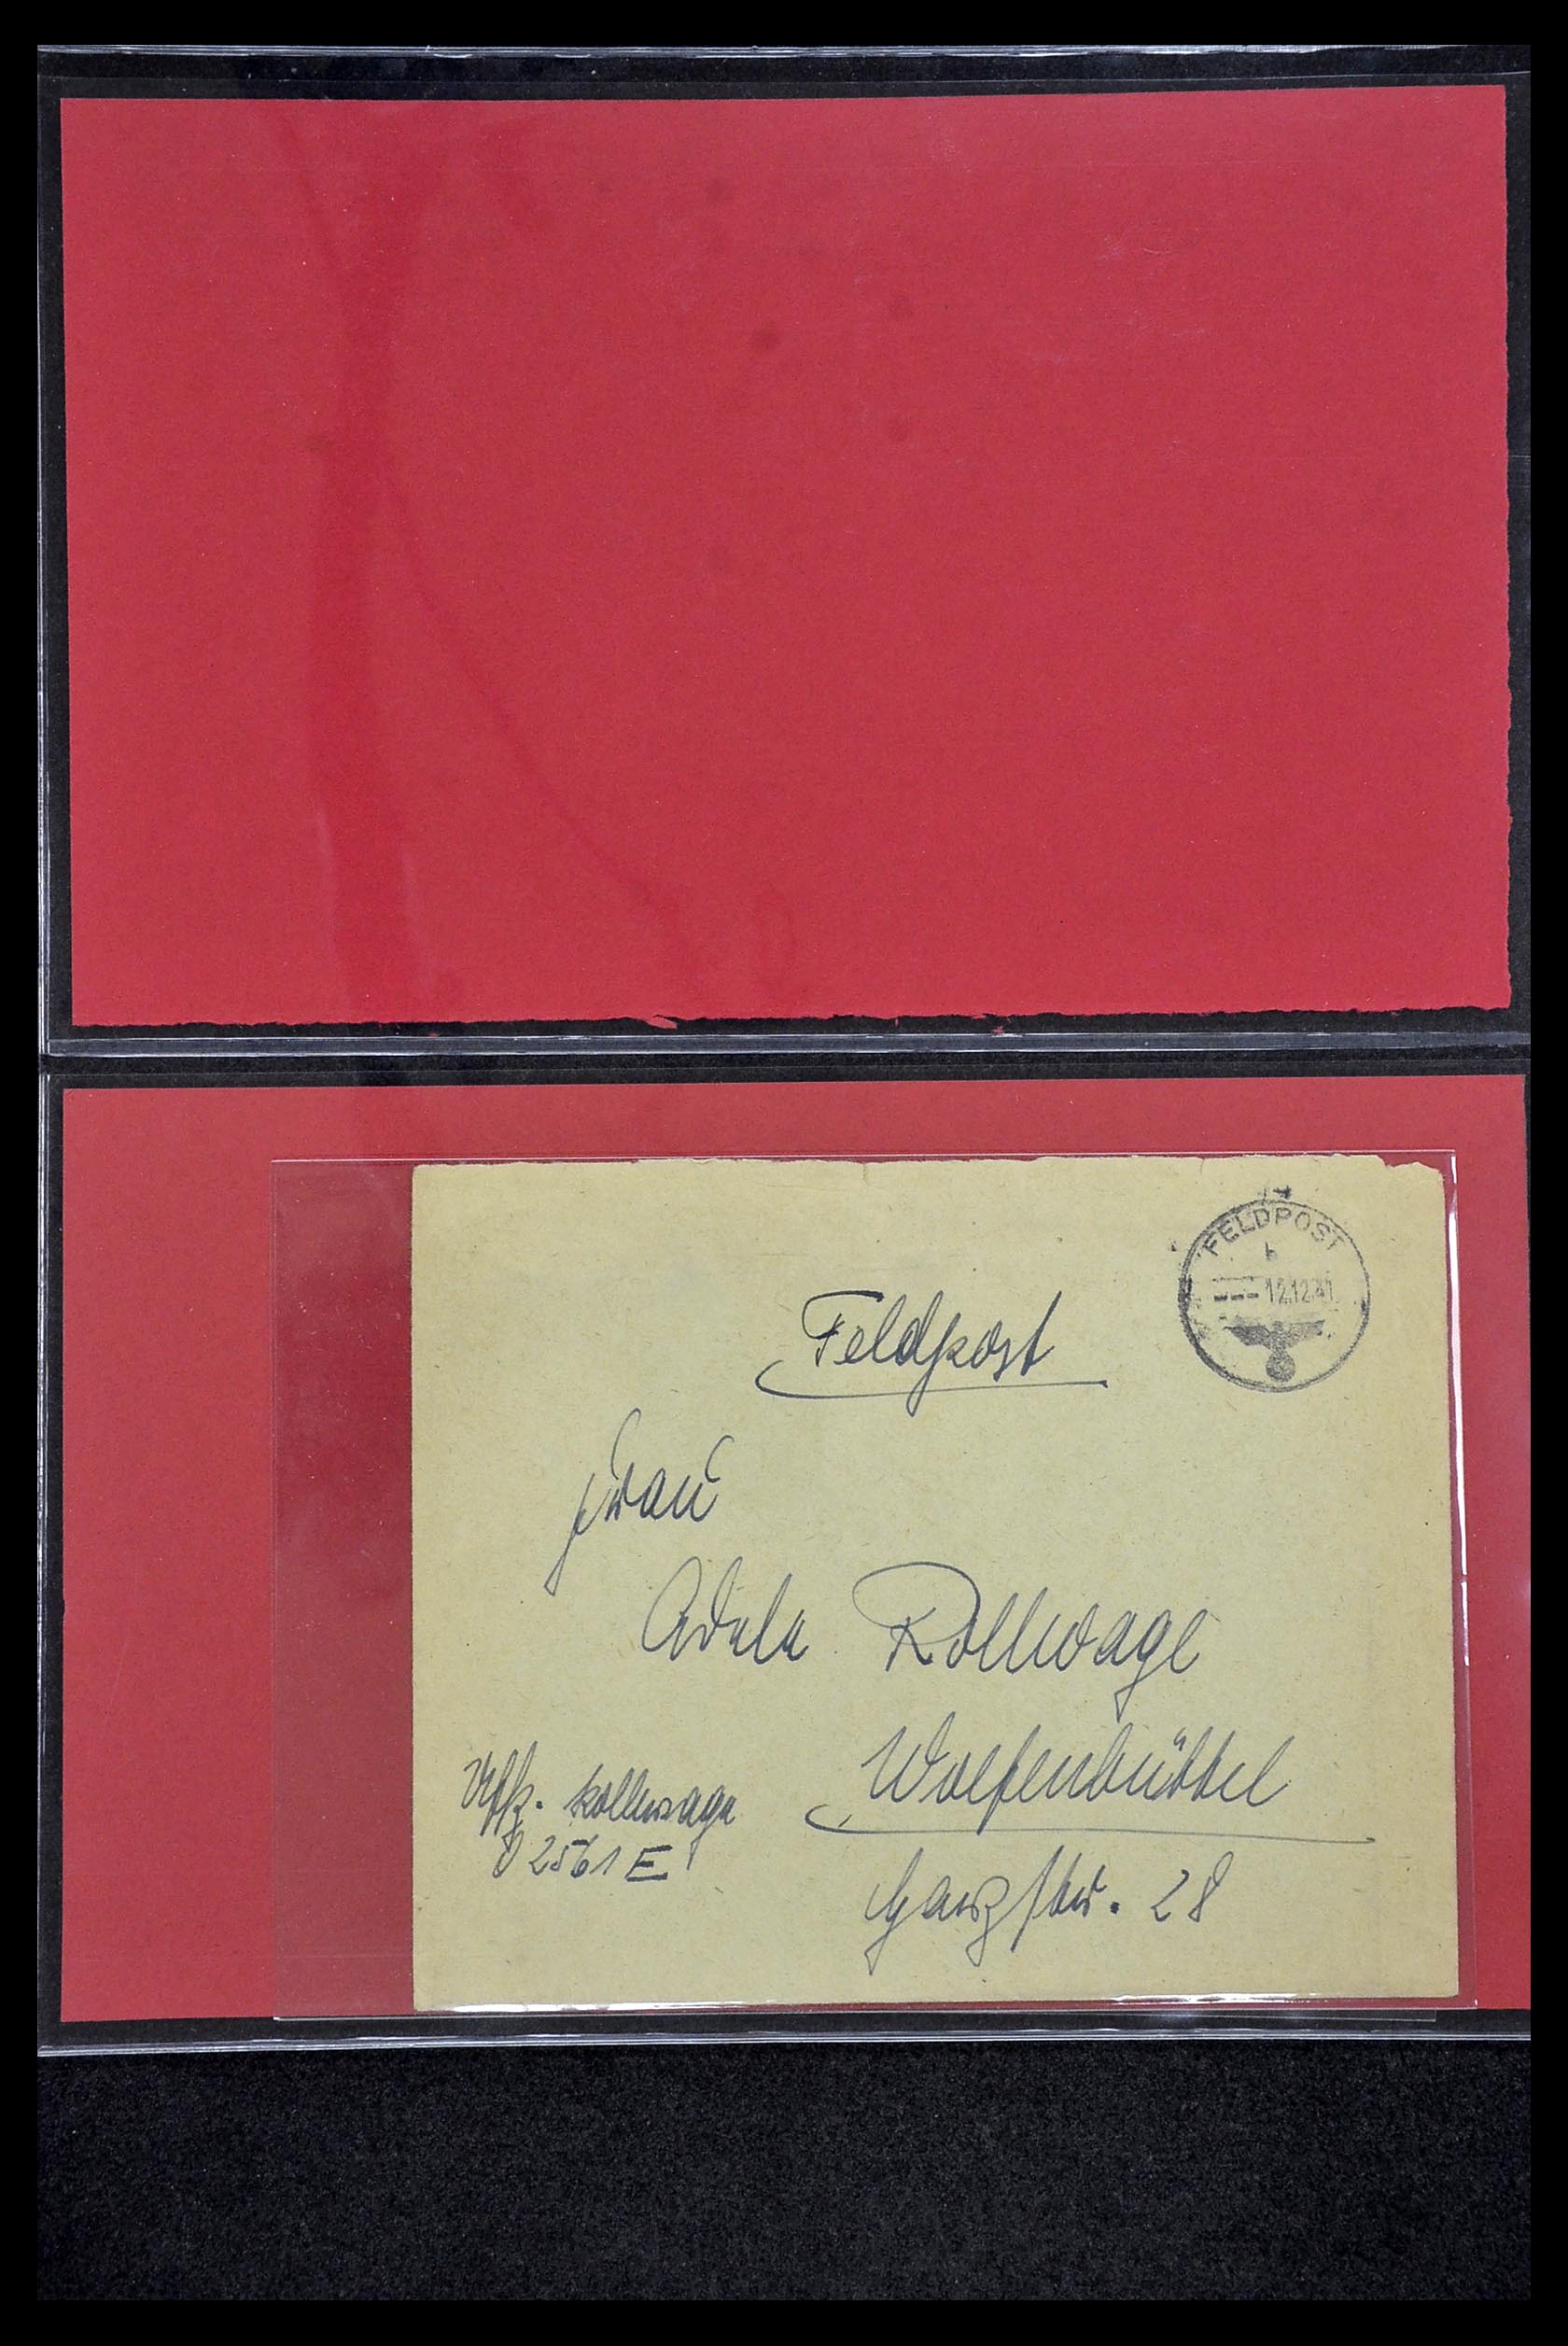 FELDPOST
b
--- 12.12.41
Feldpost
Frau
Adele Kollwage
Wolfenbüttel
Harzstr. 28
Uffz. Kollwage
02561 E